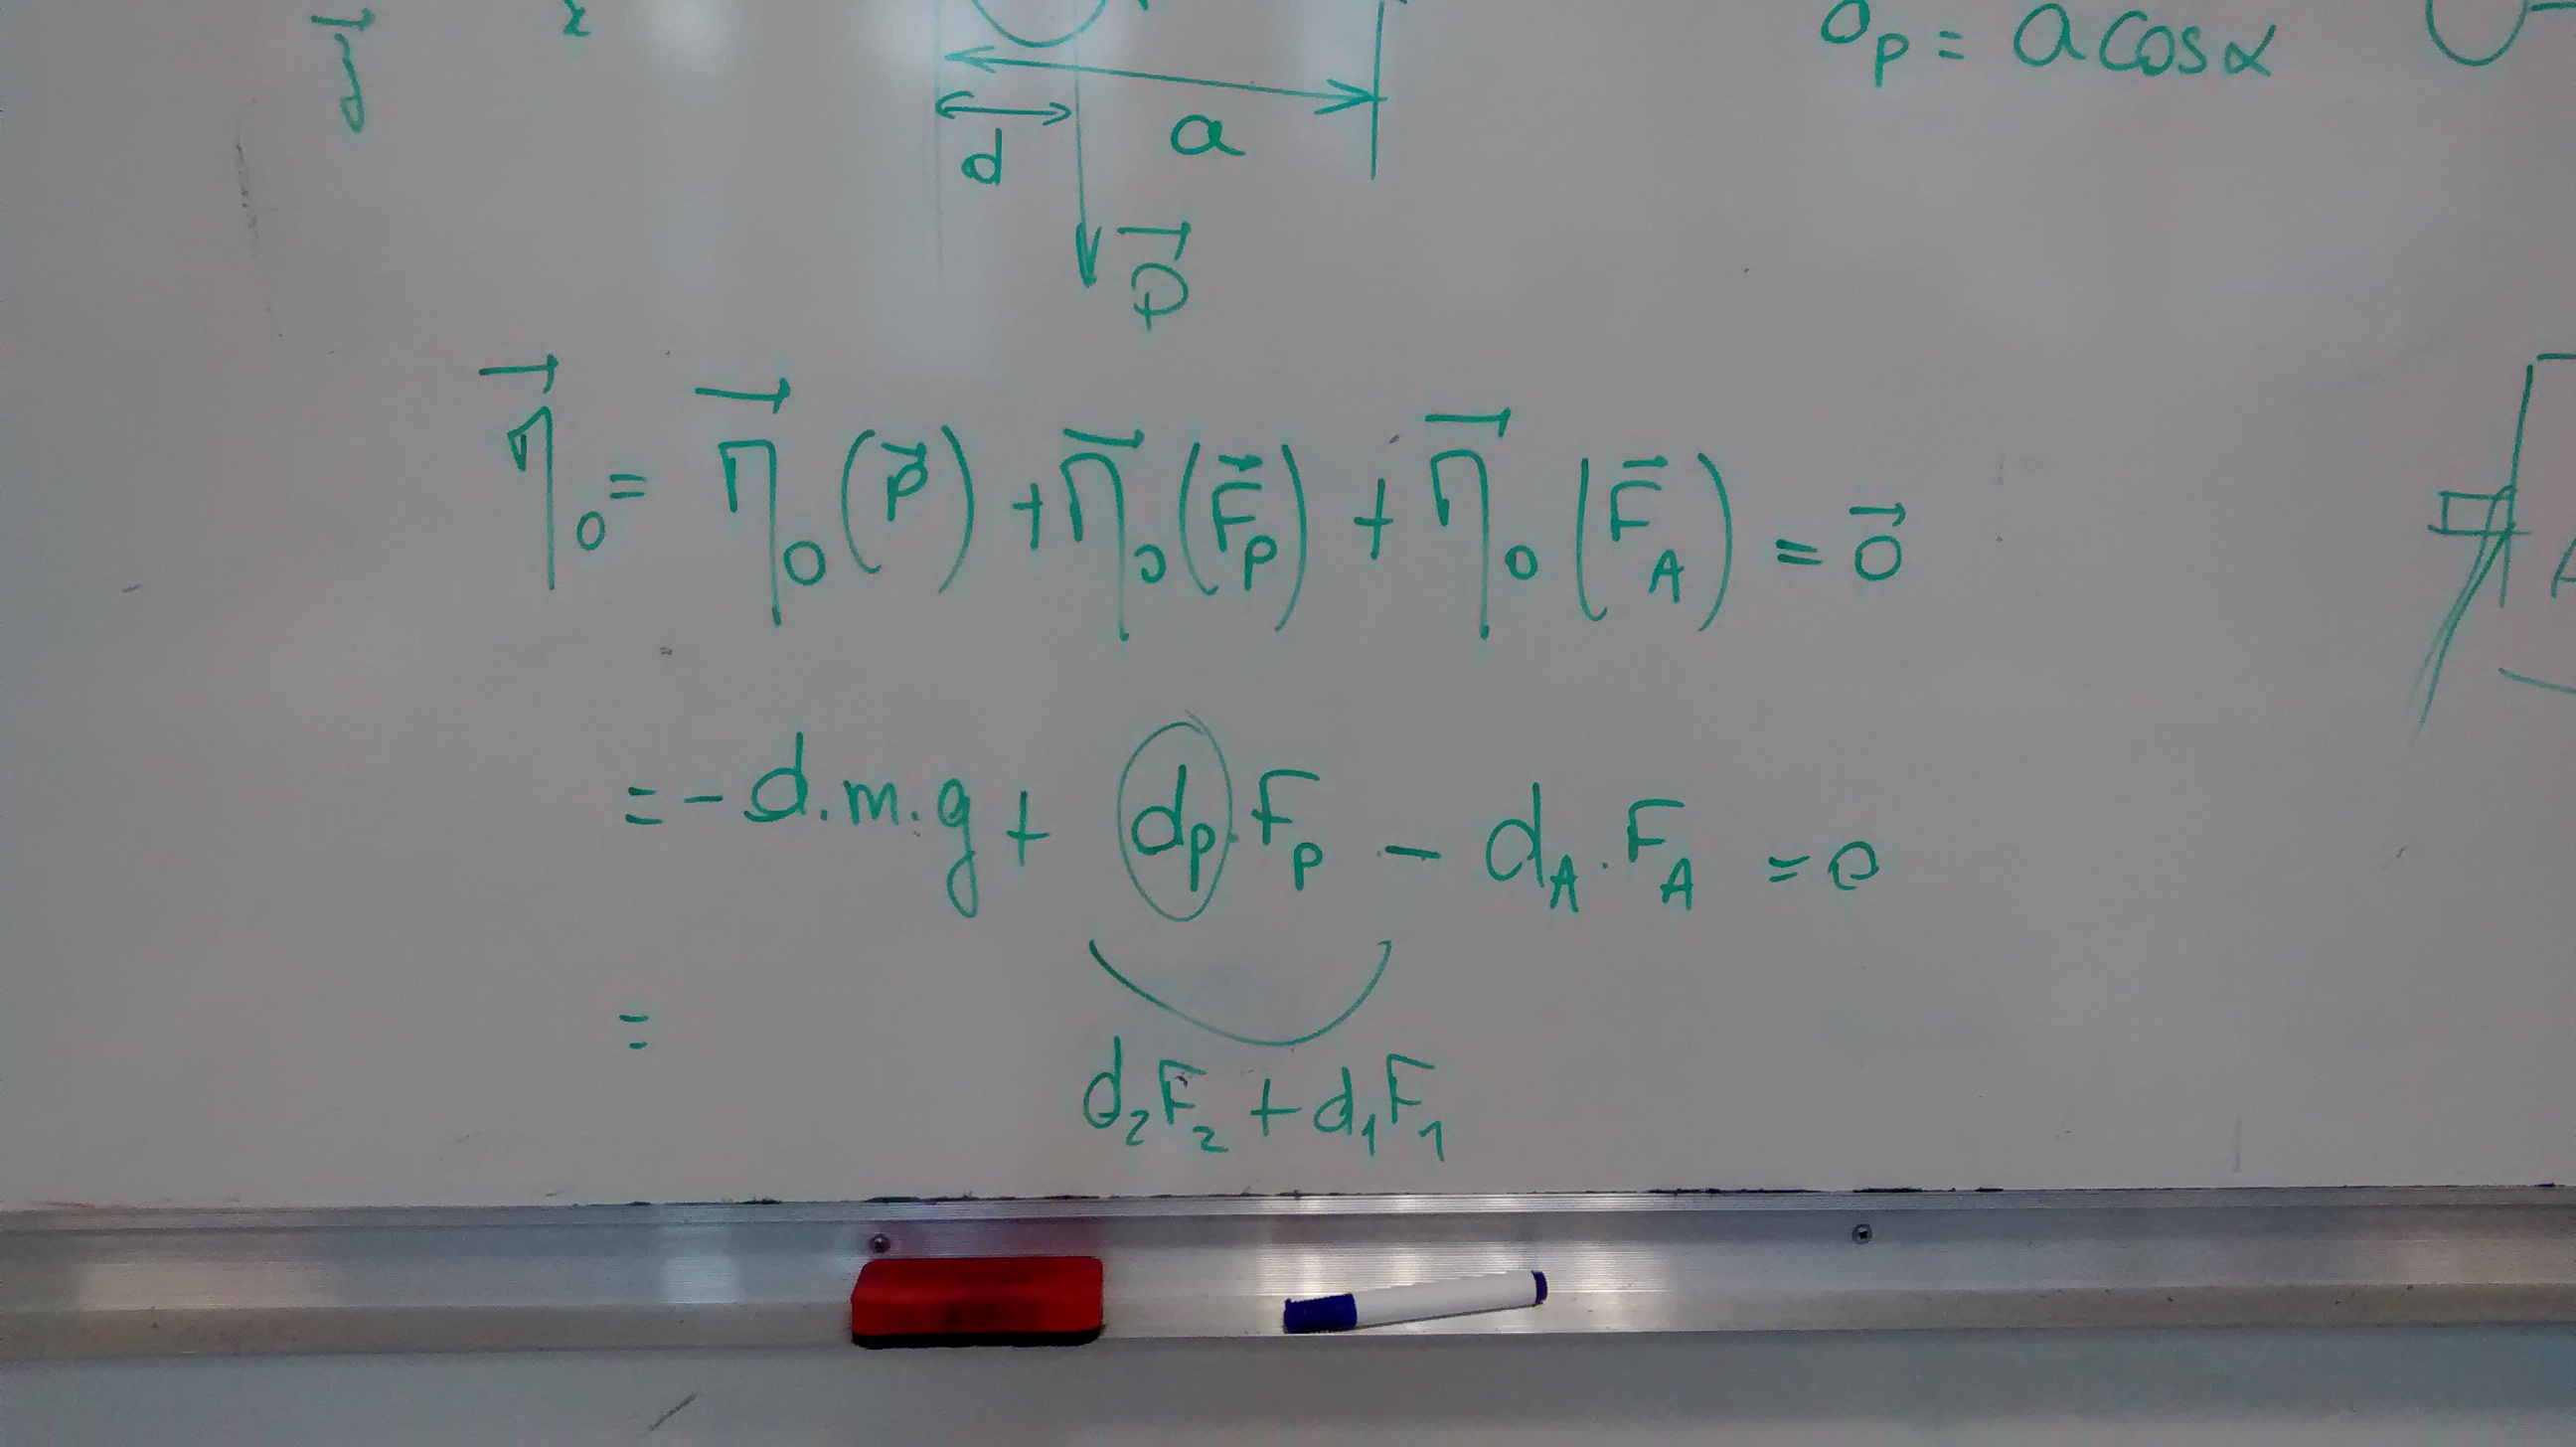 x
O_P = a cos α
a
d
P⃗
η⃗_0 = η⃗_0(P⃗) + η⃗_0(F⃗_P) + η⃗_0(F⃗_A) = 0⃗
= - d.m.g + d_P.F_P - d_A.F_A = 0
=
d_2F_2 + d_1F_1